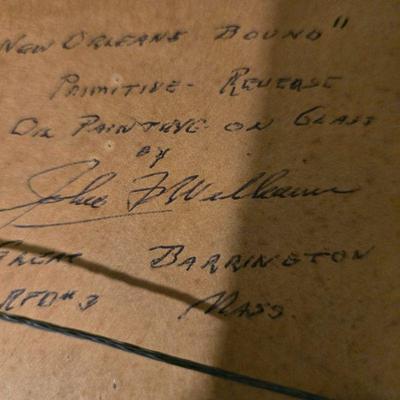 New Orleans Bound"
Primitive - Reverse
Oil Painting on Glass
by
John F Williams
Great Barrington
RFD #3 Mass.